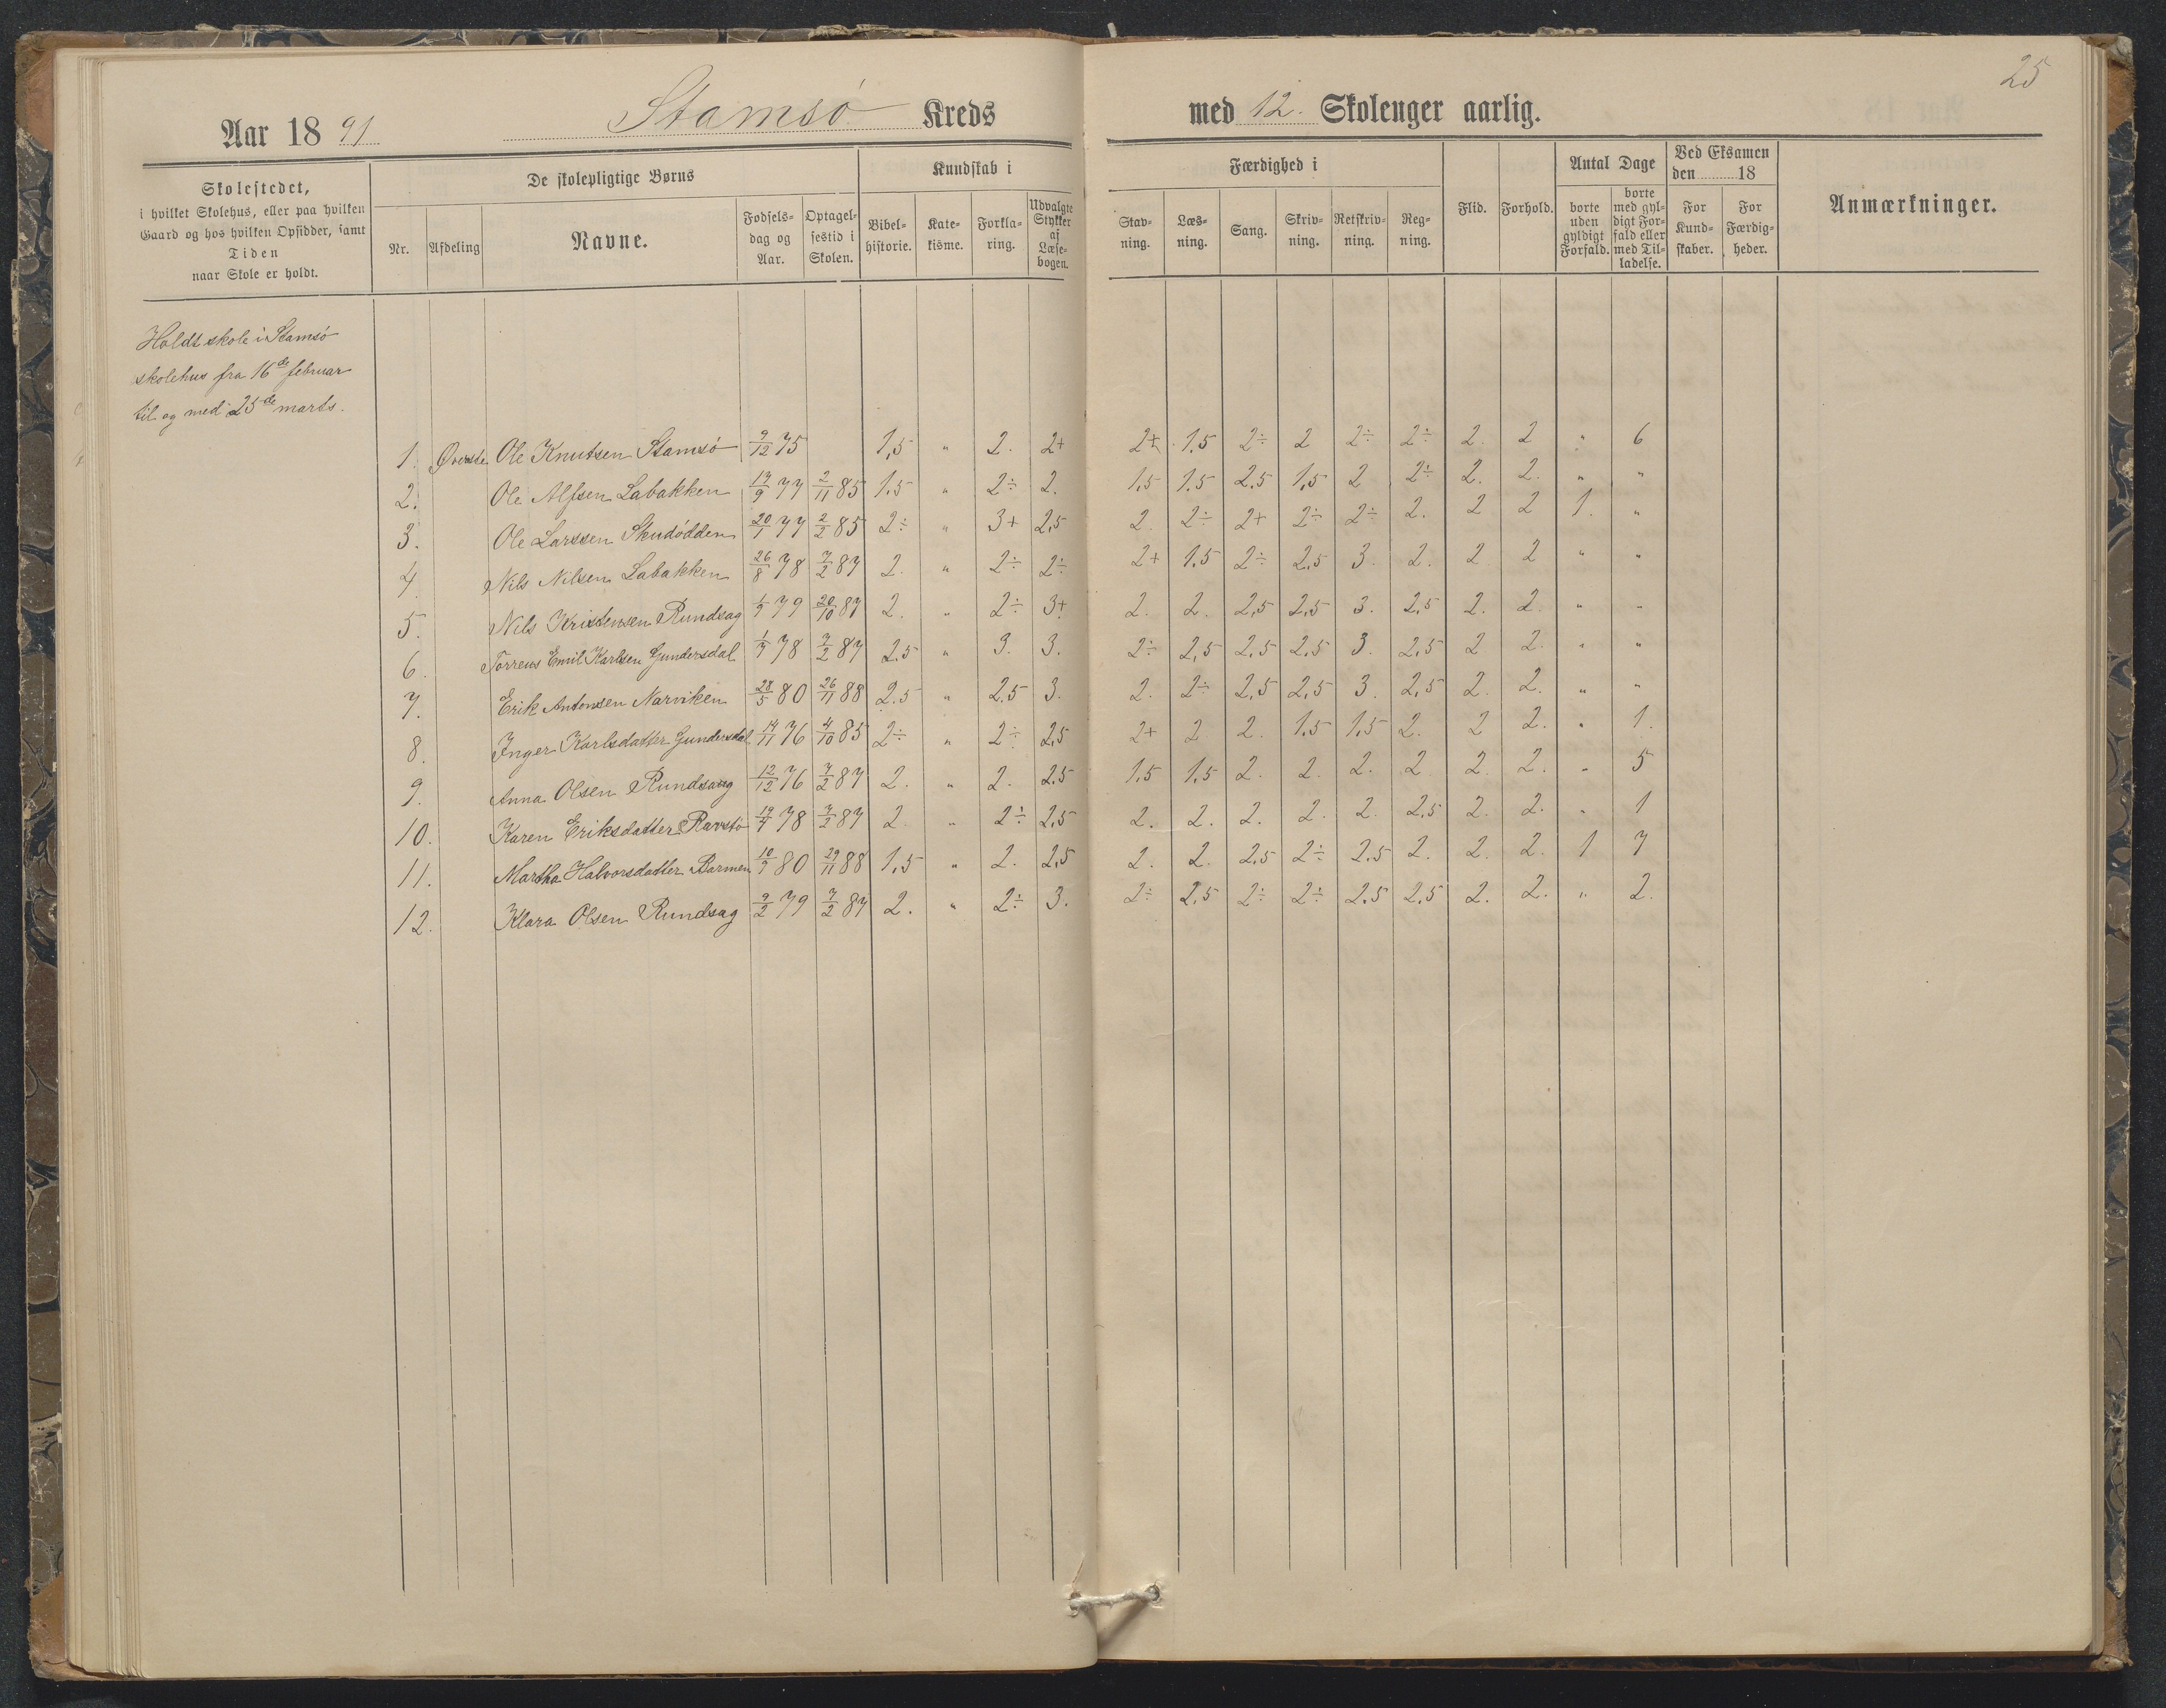 25
Aar 1891 Stamsø Kreds med 12. Skolenger aarlig.
Skolestedet, i hvilket Skolehus, eller paa hvilken Gaard og hos hvilken Opsidder, samt Tiden naar Skole er holdt.
De skolepligtige Børns
Nr. Afdeling Navne. Fødsels-dag og Aar. Optagel-sestid i Skolen.
Kundskab i
Bibel-historie. Kate-kisme. Forkla-ring. Udvalgte Stykker af Læse-bogen.
Færdighed i
Stav-ning. Læs-ning. Sang. Skriv-ning. Retskriv-ning. Reg-ning.
Flid. Forhold.
Antal Dage
borte uden gyldigt Forfald. borte med gyl-digt For-fald eller med Til-ladelse.
Ved Eksamen den 18
For Kund-skaber. For Færdig-heder.
Anmærkninger.
Holdt skole i Stamsø
skolehus fra 16de februar
til og med 25de marts.
1. Øverste Ole Knutsen Stamsø 9/12 75 1,5 " 2. 2+ 2+ 1.5 2÷ 2 2÷ 2÷ 2. 2 " 6
2. Ole Alfsen Labakken 19/9 77 2/11 85 1.5 " 2÷ 2. 1.5 1.5 2.5 1,5 2 2÷ 2. 2. " "
3. Ole Larssen Skudødden 20/7 77 2/2 85 2÷ " 3+ 2,5 2. 2÷ 2+ 2÷ 2÷ 2. 2 2 1. "
4. Nils Nilsen Labakken 26/8 78 7/2 87 2. " 2÷ 2÷ 2+ 1.5 2÷ 2,5 3. 2. 2 2 " "
5. Nils Kristensen Rundsag 1/7 79 20/10 87 2. " 2÷ 3+ 2. 2. 2,5 2,5 3. 2,5 2. 2. " "
6. Torreus Emil Karlsen Gundersdal 1/7 78 7/2 87 2.5 " 3. 3. 2÷ 2,5 2.5 2.5 3. 2,5 2 2. " "
7. Erik Antonsen Narviken 28/5 80 26/11 88 2.5 " 2.5 3. 2. 2÷ 2,5 2,5 3. 2,5 2. 2. " "
8. Inger Karlsdatter Gundersdal 14/11 76 4/10 85 2÷ " 2÷ 2,5 2+ 2 2. 1.5 1,5 2. 2 2. " 1.
9. Anna Olsen Rundsag 12/12 76 7/2 87 2. " 2. 2.5 1.5 1.5 2. 2. 2. 2 2. 2. " 5
10. Karen Eriksdatter Ravstø 19/7 78 7/2 87 2. " 2÷ 2,5 2. 2. 2. 2. 2. 2,5 2. 2. " 1
11. Martha Halvorsdatter Barmen 10/9 80 29/11 88 1,5 " 2. 2,5 2. 2. 2.5 2÷ 2.5 2. 2. 2. 1 7
12. Klara Olsen Rundsag 9/2 79 7/2 87 2. " 2÷ 3. 2÷ 2,5 2÷ 2÷ 2.5 2,5 2. 2. " 2.